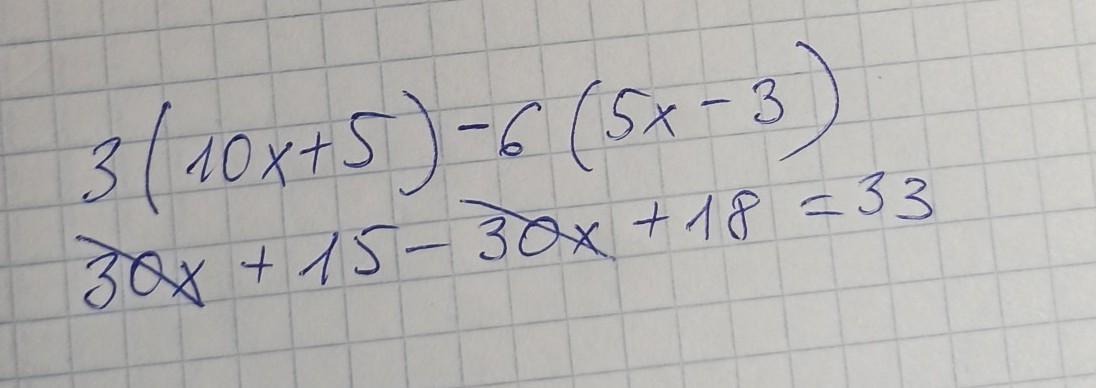 3(10x+5)-6(5x-3)
30x+15-30x+18=33